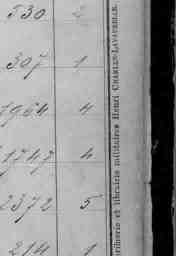 530 2
307 1
1964 4
1747 4
2372 5
214 1
imprimerie et librairie militaires Henri CHARLES-LAVAUZELLE.